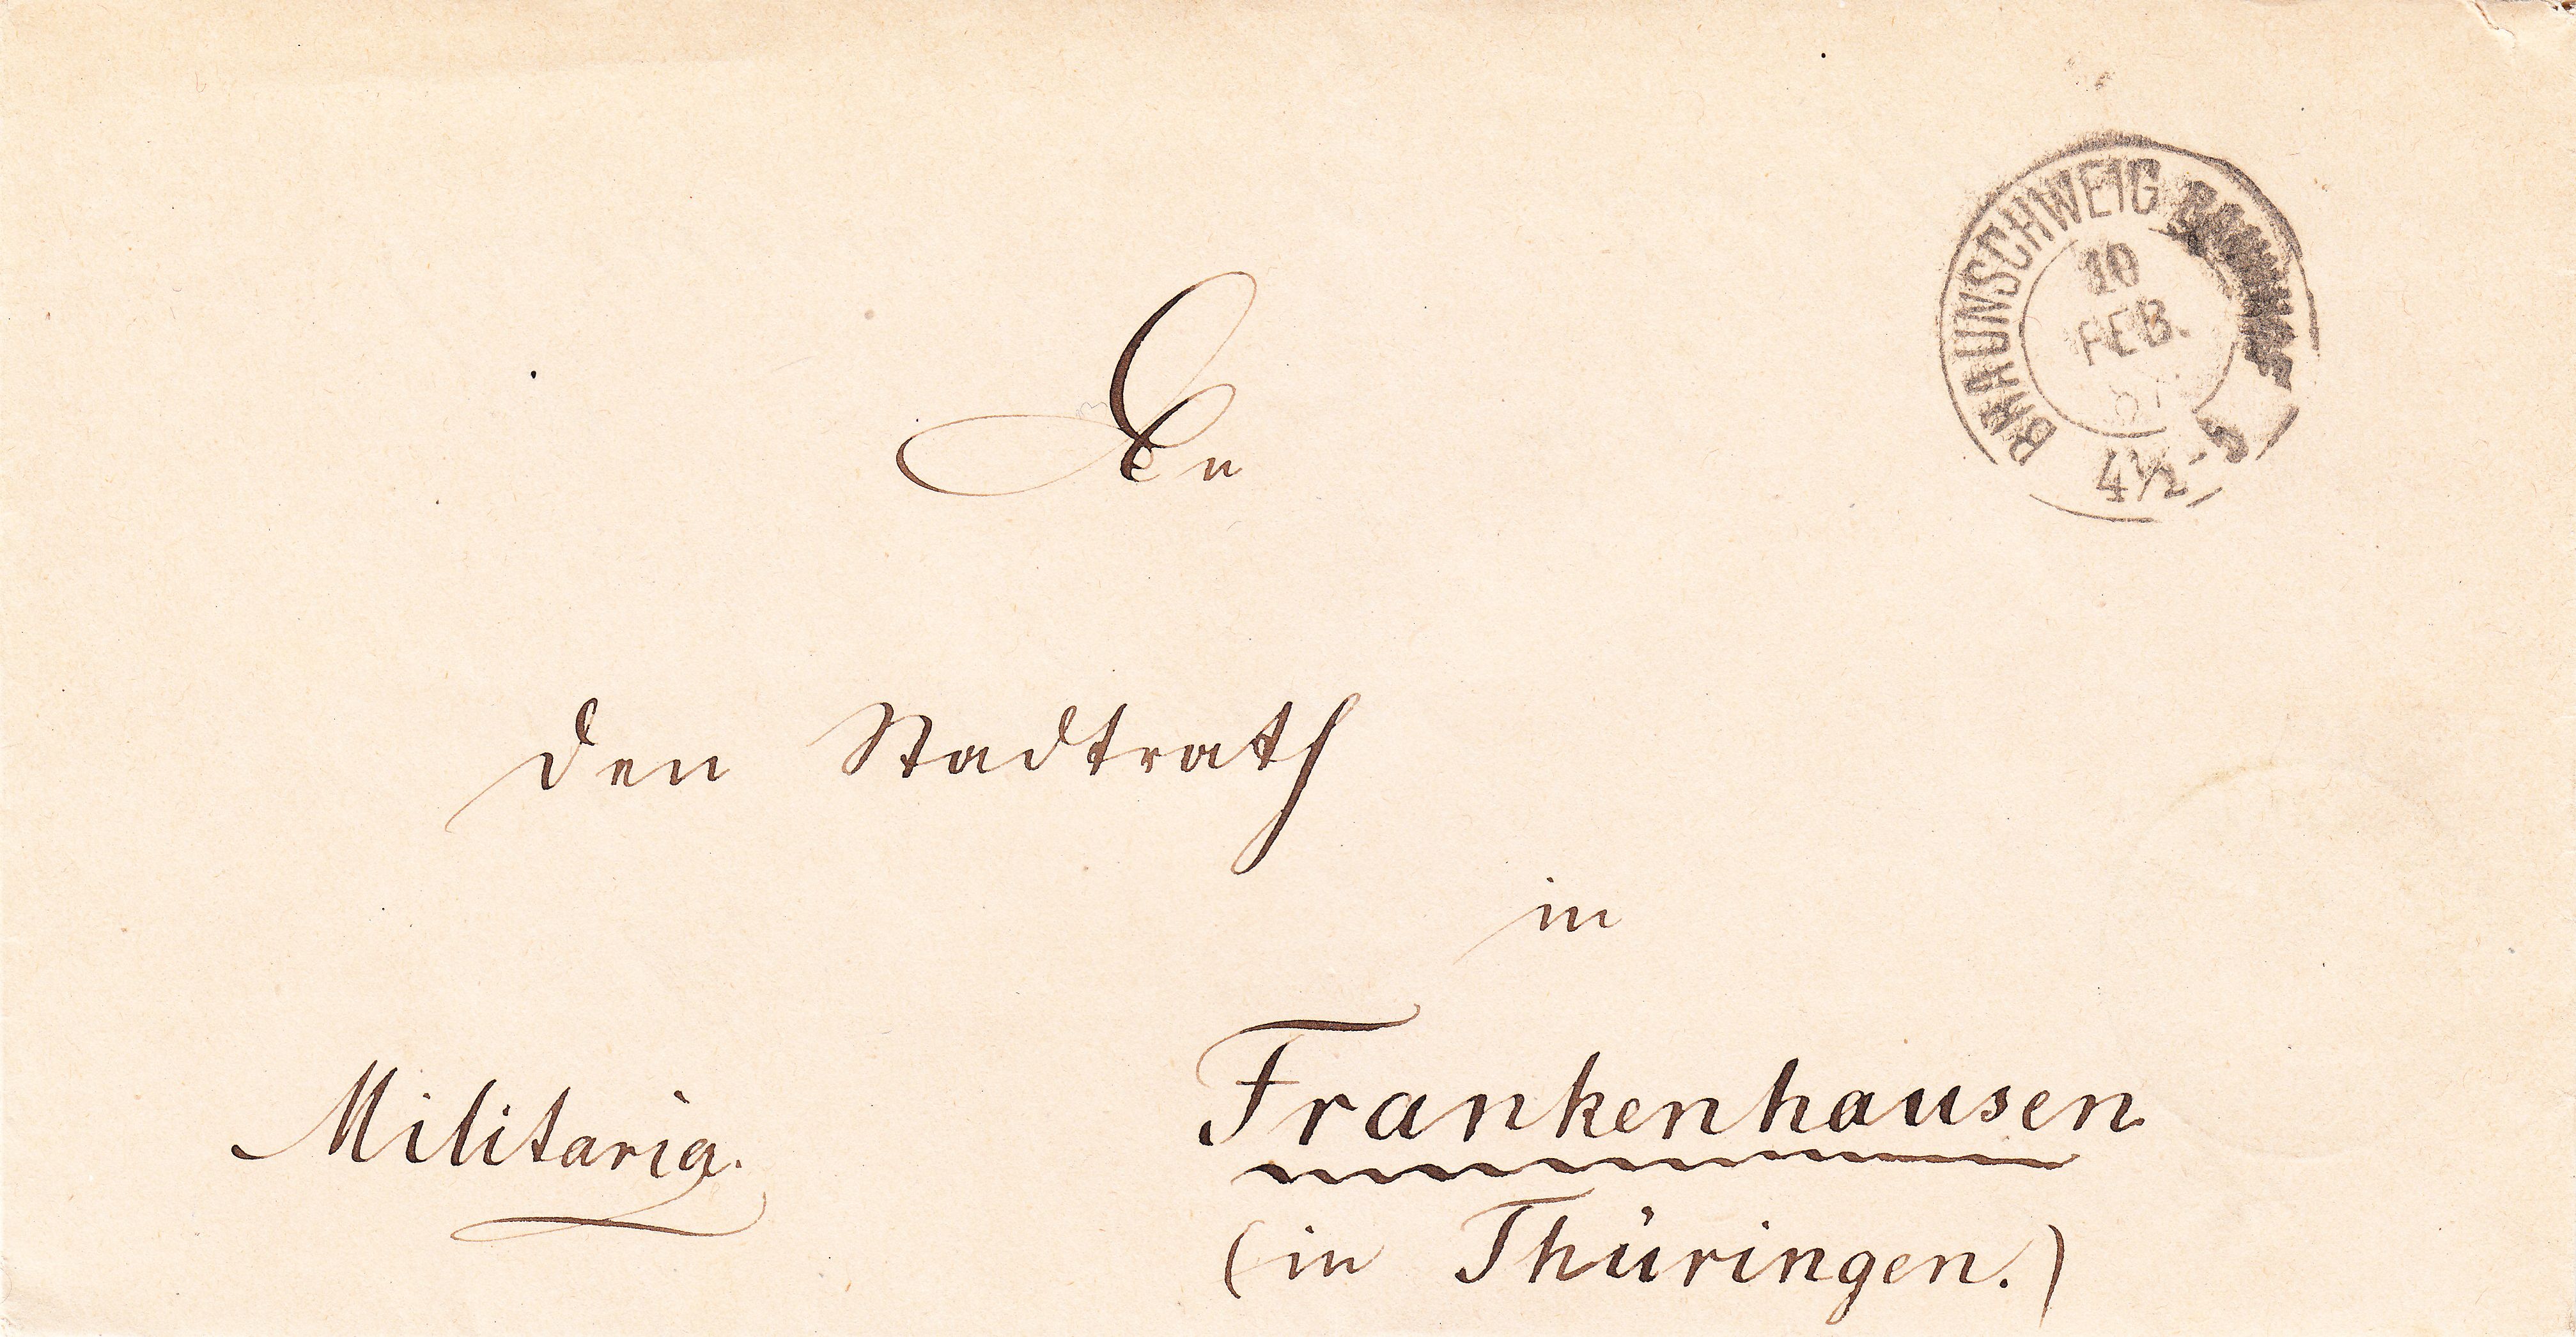 BRAUNSCHWEIG
10
FEB.
4½-5
An
den Stadtrath
in
Frankenhausen
(in Thüringen.)
Militaria.